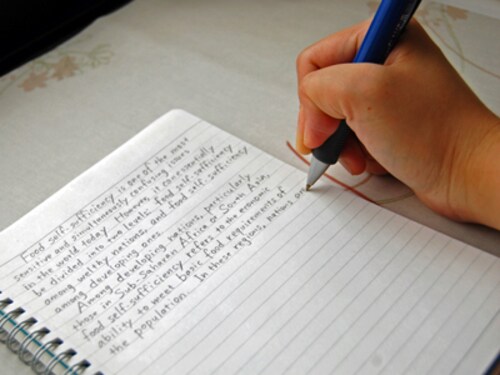 Food self-sufficiency is one of the most
sensitive and simultaneously confusing issues
in the world today. However, it can essentially
be divided into two levels: food self-sufficiency
among welthy nations, and food self-sufficiency
among developing ones.
Among developing nations, particularly
those in Sub-Saharen Africa or South Asia,
food self-sufficiency refers to the economic
ability to meet basic food requirements of
the population. In these regions, nations are